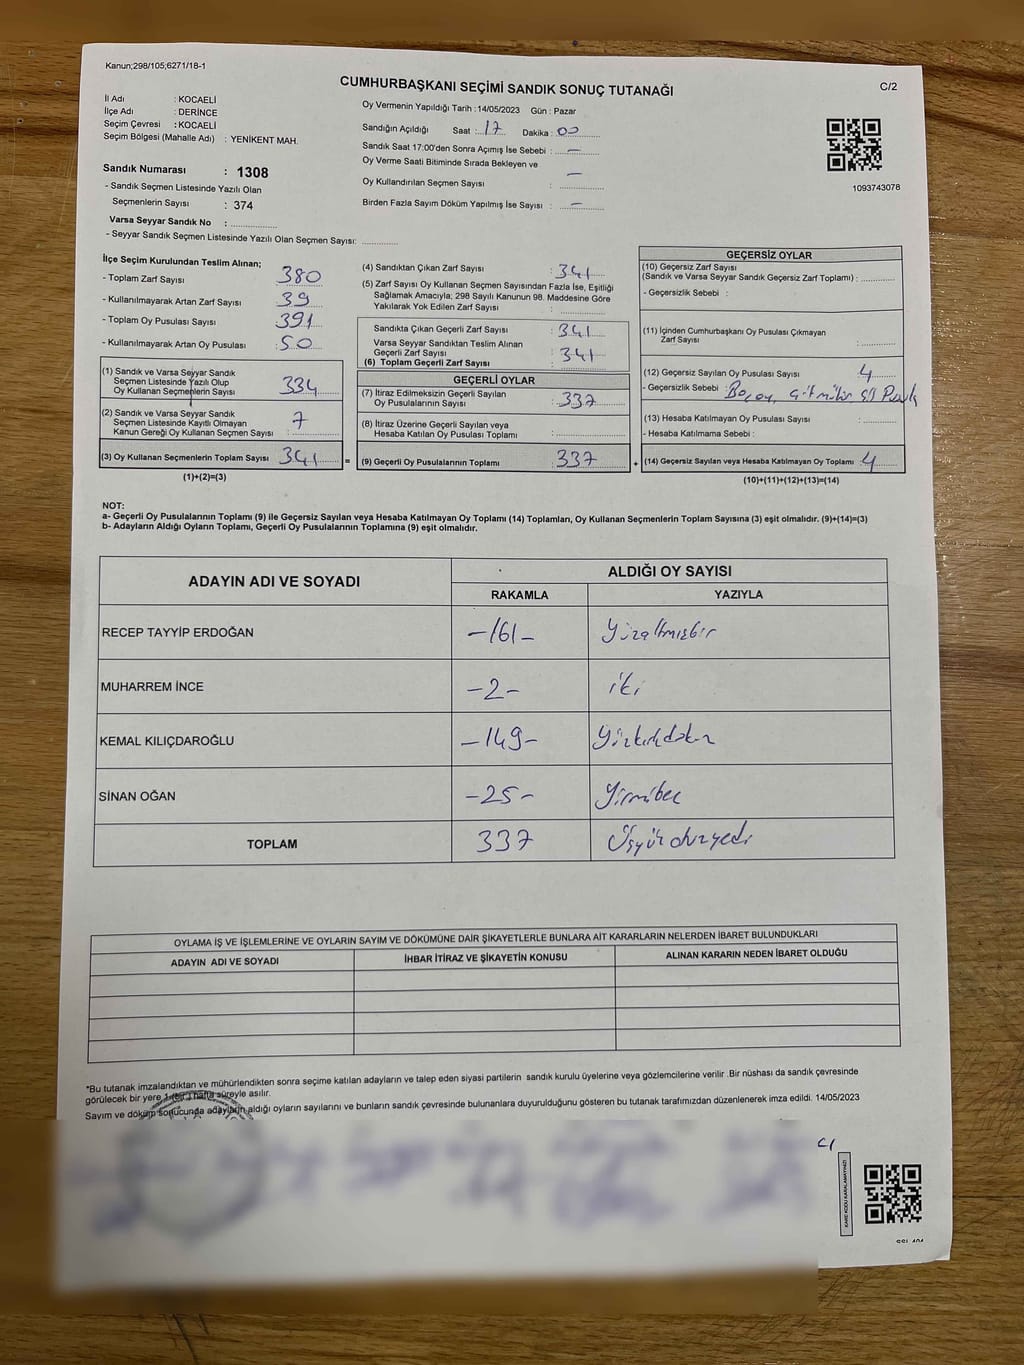 Kanun;298/105;6271/18-1
CUMHURBAŞKANI SEÇİMİ SANDIK SONUÇ TUTANAĞI
C/2
İl Adı : KOCAELİ
İlçe Adı : DERİNCE
Seçim Çevresi : KOCAELİ
Seçim Bölgesi (Mahalle Adı) : YENİKENT MAH.
Sandık Numarası : 1308
- Sandık Seçmen Listesinde Yazılı Olan
Seçmenlerin Sayısı : 374
Varsa Seyyar Sandık No :
- Seyyar Sandık Seçmen Listesinde Yazılı Olan Seçmen Sayısı:
Oy Vermenin Yapıldığı Tarih :14/05/2023 Gün : Pazar
Sandığın Açıldığı Saat : 17 Dakika : 00
Sandık Saat 17:00'den Sonra Açımış İse Sebebi : —
Oy Verme Saati Bitiminde Sırada Bekleyen ve
Oy Kullandırılan Seçmen Sayısı : —
Birden Fazla Sayım Döküm Yapılmış İse Sayısı : —
1093743078
İlçe Seçim Kurulundan Teslim Alınan;
- Toplam Zarf Sayısı 380
- Kullanılmayarak Artan Zarf Sayısı 39
- Toplam Oy Pusulası Sayısı 391
- Kullanılmayarak Artan Oy Pusulası 50
(1) Sandık ve Varsa Seyyar Sandık
Seçmen Listesinde Yazılı Olup
Oy Kullanan Seçmenlerin Sayısı 334
(2) Sandık ve Varsa Seyyar Sandık
Seçmen Listesinde Kayıtlı Olmayan
Kanun Gereği Oy Kullanan Seçmen Sayısı : 7
(3) Oy Kullanan Seçmenlerin Toplam Sayısı 341 =
(1)+(2)=(3)
(4) Sandıktan Çıkan Zarf Sayısı : 341
(5) Zarf Sayısı Oy Kullanan Seçmen Sayısından Fazla İse, Eşitliği
Sağlamak Amacıyla; 298 Sayılı Kanunun 98. Maddesine Göre
Yakılarak Yok Edilen Zarf Sayısı :
Sandıkta Çıkan Geçerli Zarf Sayısı : 341
Varsa Seyyar Sandıktan Teslim Alınan
Geçerli Zarf Sayısı : 341
(6) Toplam Geçerli Zarf Sayısı :
GEÇERLİ OYLAR
(7) İtiraz Edilmeksizin Geçerli Sayılan
Oy Pusulalarının Sayısı : 337
(8) İtiraz Üzerine Geçerli Sayılan veya
Hesaba Katılan Oy Pusulası Toplamı :
(9) Geçerli Oy Pusulalarının Toplamı 337 +
GEÇERSİZ OYLAR
(10) Geçersiz Zarf Sayısı
(Sandık ve Varsa Seyyar Sandık Geçersiz Zarf Toplamı) :
- Geçersizlik Sebebi :
(11) İçinden Cumhurbaşkanı Oy Pusulası Çıkmayan
Zarf Sayısı :
(12) Geçersiz Sayılan Oy Pusulası Sayısı : 4
- Geçersizlik Sebebi :
(13) Hesaba Katılmayan Oy Pusulası Sayısı :
- Hesaba Katılmama Sebebi :
(14) Geçersiz Sayılan veya Hesaba Katılmayan Oy Toplamı 4
(10)+(11)+(12)+(13)=(14)
NOT:
a- Geçerli Oy Pusulalarının Toplamı (9) ile Geçersiz Sayılan veya Hesaba Katılmayan Oy Toplamı (14) Toplamları, Oy Kullanan Seçmenlerin Toplam Sayısına (3) eşit olmalıdır. (9)+(14)=(3)
b- Adayların Aldığı Oyların Toplamı, Geçerli Oy Pusulalarının Toplamına (9) eşit olmalıdır.
ADAYIN ADI VE SOYADI ALDIĞI OY SAYISI
RAKAMLA YAZIYLA
RECEP TAYYİP ERDOĞAN -161- Yüzaltmışbir
MUHARREM İNCE -2- iki
KEMAL KILIÇDAROĞLU -149- Yüzkırkdokuz
SİNAN OĞAN -25- Yirmibeş
TOPLAM 337 Üçyüzotuzyedi
OYLAMA İŞ VE İŞLEMLERİNE VE OYLARIN SAYIM VE DÖKÜMÜNE DAİR ŞİKAYETLERLE BUNLARA AİT KARARLARIN NELERDEN İBARET BULUNDUKLARI
ADAYIN ADI VE SOYADI İHBAR İTİRAZ VE ŞİKAYETİN KONUSU ALINAN KARARIN NEDEN İBARET OLDUĞU
*Bu tutanak imzalandıktan ve mühürlendikten sonra seçime katılan adayların ve talep eden siyasi partilerin sandık kurulu üyelerine veya gözlemcilerine verilir .Bir nüshası da sandık çevresinde
görülecek bir yere 1 (bir) hafta süreyle asılır.
Sayım ve döküm sonucunda adayların aldığı oyların sayılarını ve bunların sandık çevresinde bulunanlara duyurulduğunu gösteren bu tutanak tarafımızdan düzenlenerek imza edildi. 14/05/2023
KARE KODU KARALAMAYINIZ!